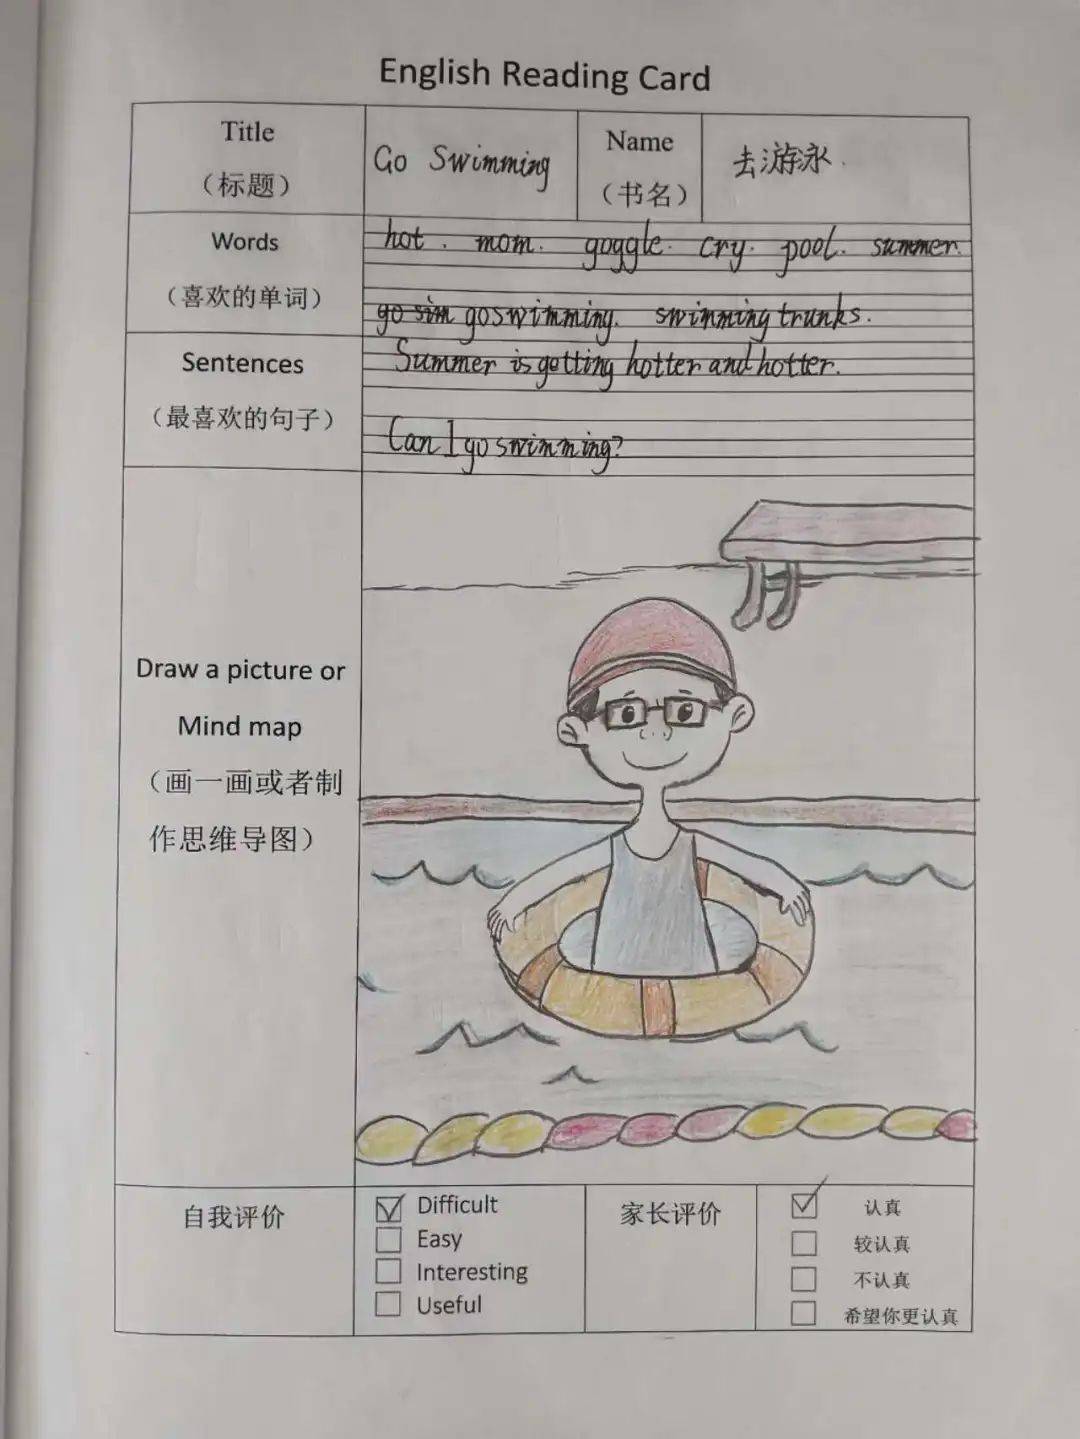 English Reading Card
Title
（标题）
Go Swimming
Name
（书名）
去游泳.
Words
（喜欢的单词）
hot. mom. goggle. cry. pool. summer.
go sim go swimming. swimming trunks.
Sentences
（最喜欢的句子）
Summer is getting hotter and hotter.
Can I go swimming?
Draw a picture or
Mind map
（画一画或者制
作思维导图）
自我评价
Difficult
Easy
Interesting
Useful
家长评价
认真
较认真
不认真
希望你更认真